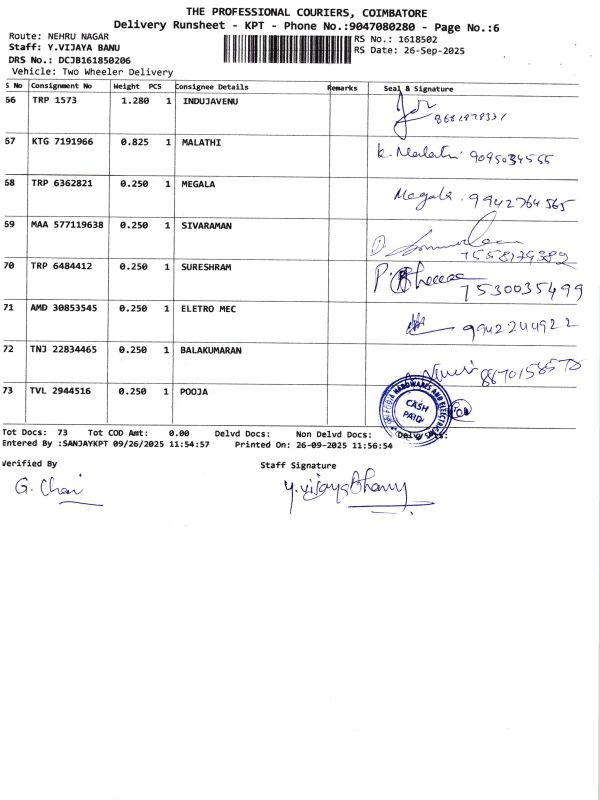 THE PROFESSIONAL COURIERS, COIMBATORE
Delivery Runsheet - KPT - Phone No.:9047080280 - Page No.:6
Route: NEHRU NAGAR
RS No.: 1618502
Staff: Y.VIJAYA BANU
RS Date: 26-Sep-2025
DRS No.: DCJB161850206
Vehicle: Two Wheeler Delivery
S No Consignment No Weight PCS Consignee Details Remarks Seal & Signature
66 TRP 1573 1.280 1 INDUJAVENU
67 KTG 7191966 0.825 1 MALATHI K. Malathi 9095034565
68 TRP 6362821 0.250 1 MEGALA Megala. 9942764565
69 MAA 577119638 0.250 1 SIVARAMAN 7558179382
70 TRP 6484412 0.250 1 SURESHRAM 7530035499
71 AMD 30853545 0.250 1 ELETRO MEC 9942244922
72 TNJ 22834465 0.250 1 BALAKUMARAN
73 TVL 2944516 0.250 1 POOJA CASH PAID
Tot Docs: 73 Tot COD Amt: 0.00 Delvd Docs: Non Delvd Docs: Delvd
Entered By :SANJAYKPT 09/26/2025 11:54:57 Printed On: 26-09-2025 11:56:54
Verified By Staff Signature
G. Y.Vijaya Bhanu